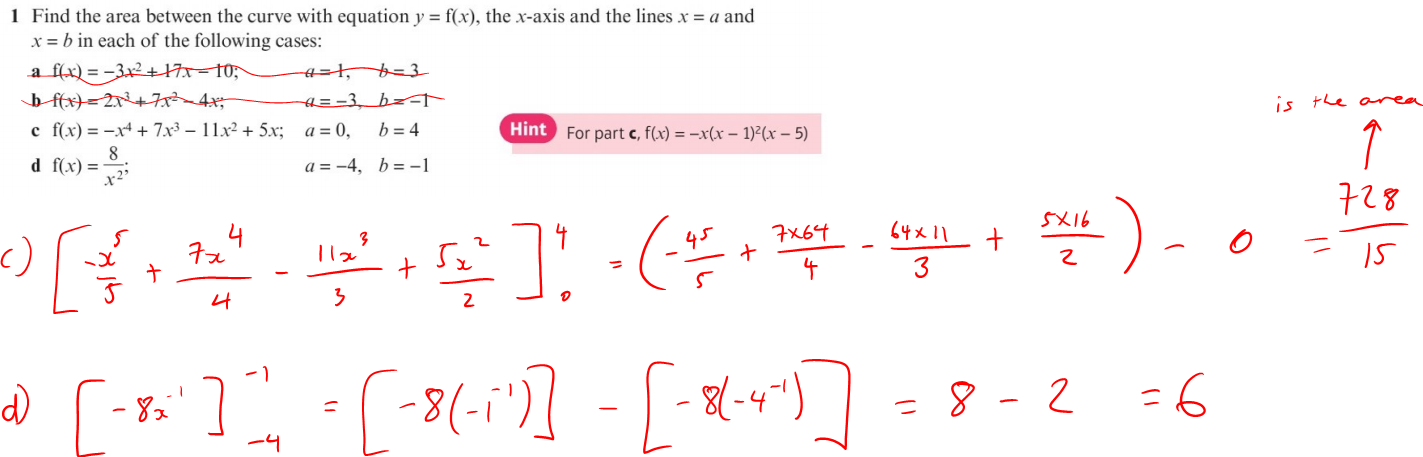 1 Find the area between the curve with equation y = f(x), the x-axis and the lines x = a and
x = b in each of the following cases:
a f(x) = −3x² + 17x − 10; a = 1, b = 3
b f(x) = 2x³ + 7x² − 4x; a = −3, b = −1
c f(x) = −x⁴ + 7x³ − 11x² + 5x; a = 0, b = 4
Hint For part c, f(x) = −x(x − 1)²(x − 5)
d f(x) = 8/x²; a = −4, b = −1
is the area
c) [-x⁵/5 + 7x⁴/4 - 11x³/3 + 5x²/2]⁴₀ = (-45/5 + 7×64/4 - 64×11/3 + 5×16/2) - 0 = 728/15
d) [-8x⁻¹]⁻¹₋₄ = [-8(-1⁻¹)] - [-8(-4⁻¹)] = 8 - 2 = 6